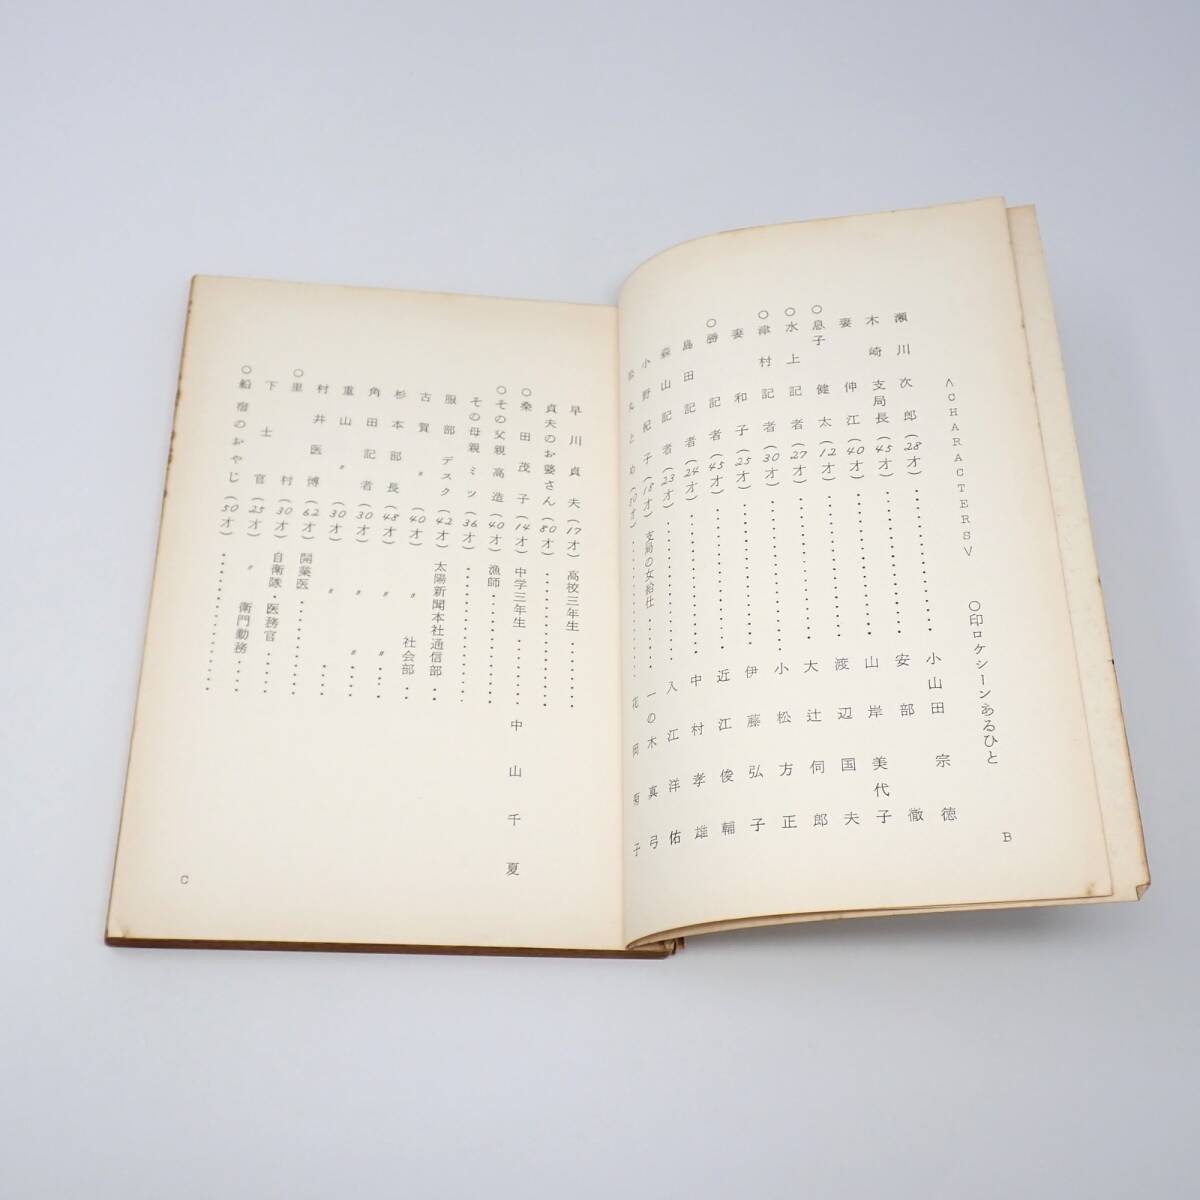 〇印ロケシーンあるひと
<CHARACTERS>
瀬川次郎(28才)・・・・・・・・・・・・・・・小山田宗徳
木崎支局長(45才)・・・・・・・・・・・・・・・安部徹
妻 伸江(40才)・・・・・・・・・・・・・・・山岸美代子
〇息子 健太(12才)・・・・・・・・・・・・・・・渡辺国夫
〇水上記者(27才)・・・・・・・・・・・・・・・大辻伺郎
〇津村記者(30才)・・・・・・・・・・・・・・・小松方正
妻 和子(25才)・・・・・・・・・・・・・・・伊藤弘子
〇勝 記者(45才)・・・・・・・・・・・・・・・近江俊輔
島田記者(24才)・・・・・・・・・・・・・・・中村孝雄
森山記者(23才)・・・・・・・・・・・・・・・入江洋佑
小野紀子(18才)支局の女給仕・・・・・一の木真弓
とめ(50才)・・・・・・・・・・・・・・・花岡菊子
B
早川貞夫(17才)高校三年生・・・・・・・・
貞夫のお婆さん(80才)・・・・・・・・・・・・・・・
〇桑田茂子(14才)中学三年生・・・・・・・・中山千夏
〇その父親高造(40才)漁師・・・・・・・・・・・・
その母親ミツ(36才)・・・・・・・・・・・・・・・
服部デスク(42才)太陽新聞本社通信部・・
古賀〃(40才)〃 社会部・・
杉本部長(48才)〃 〃・・
角田記者(30才)〃 〃・・
重山〃(30才)〃・・・・
村井医博(62才)開業医・・・・・・・・・・・
〇里村(30才)自衛隊・医務官・・・・・
下士官(25才)〃 衛門勤務・・
〇船宿のおやじ(50才)・・・・・・・・・・・・・・・
C